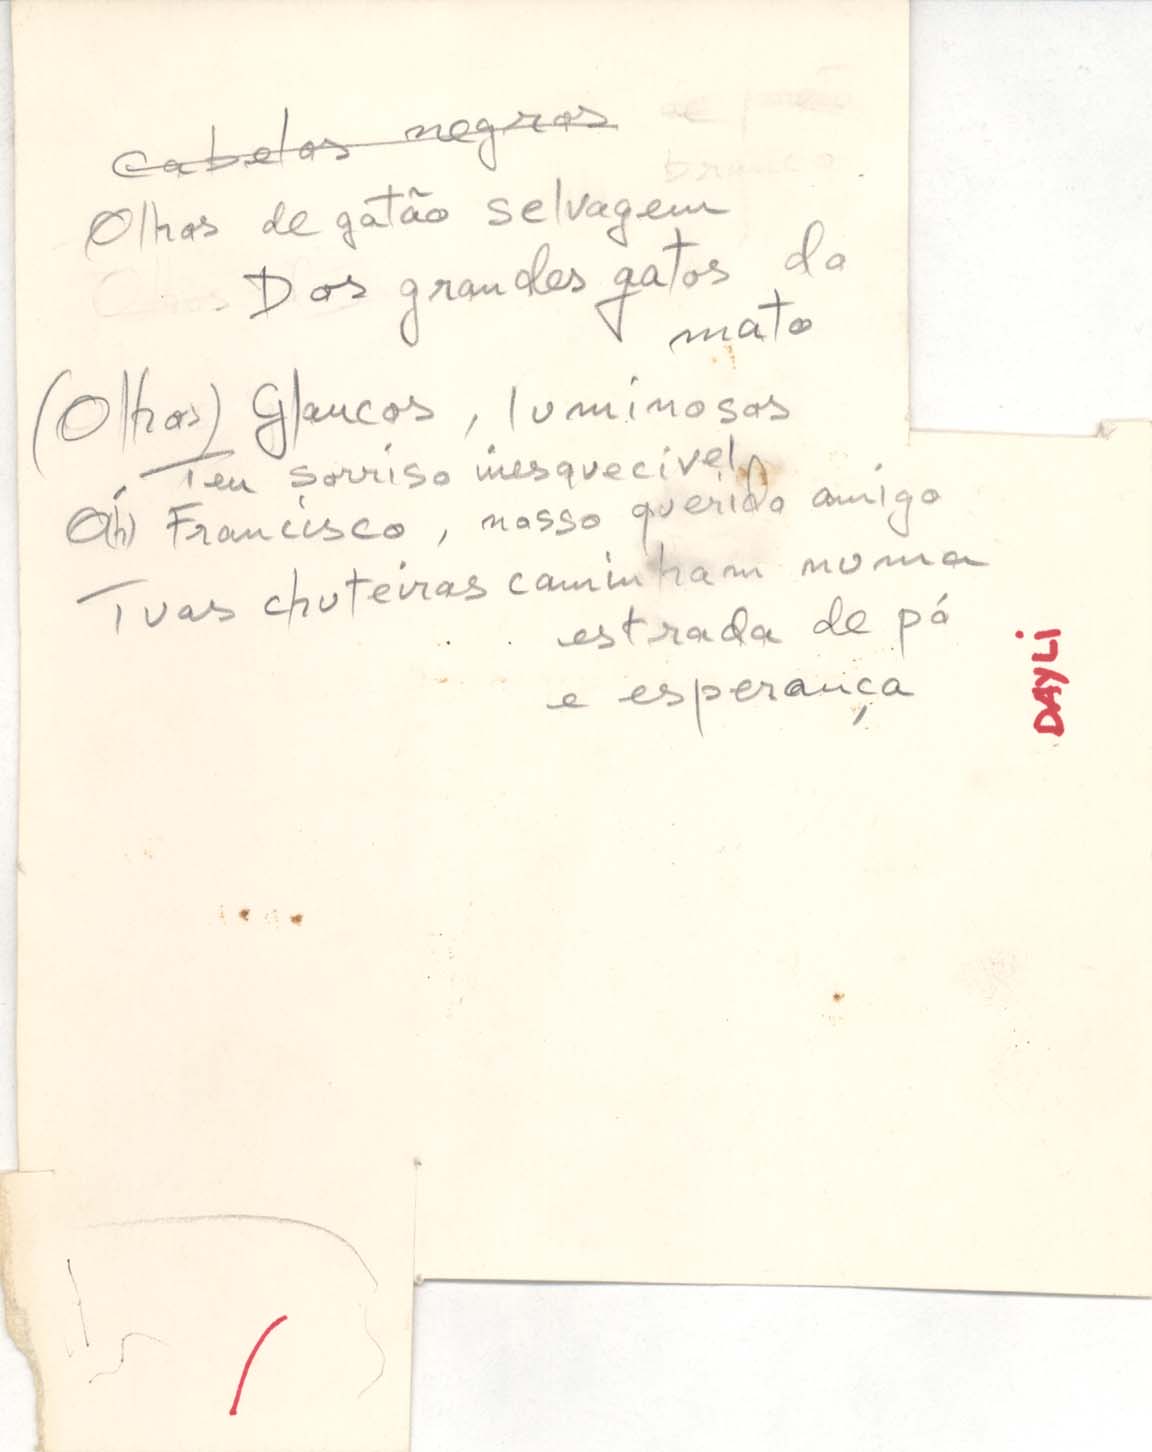 Cabelos negros
Olhos de gatão selvagem
Dos grandes gatos do
mato
(Olhos) Glaucos, luminosos
Teu sorriso inesquecível
Ó(h) Francisco, nosso querido amigo
Tuas chuteiras caminham numa
estrada de pó
e esperança
DAYLi
branco